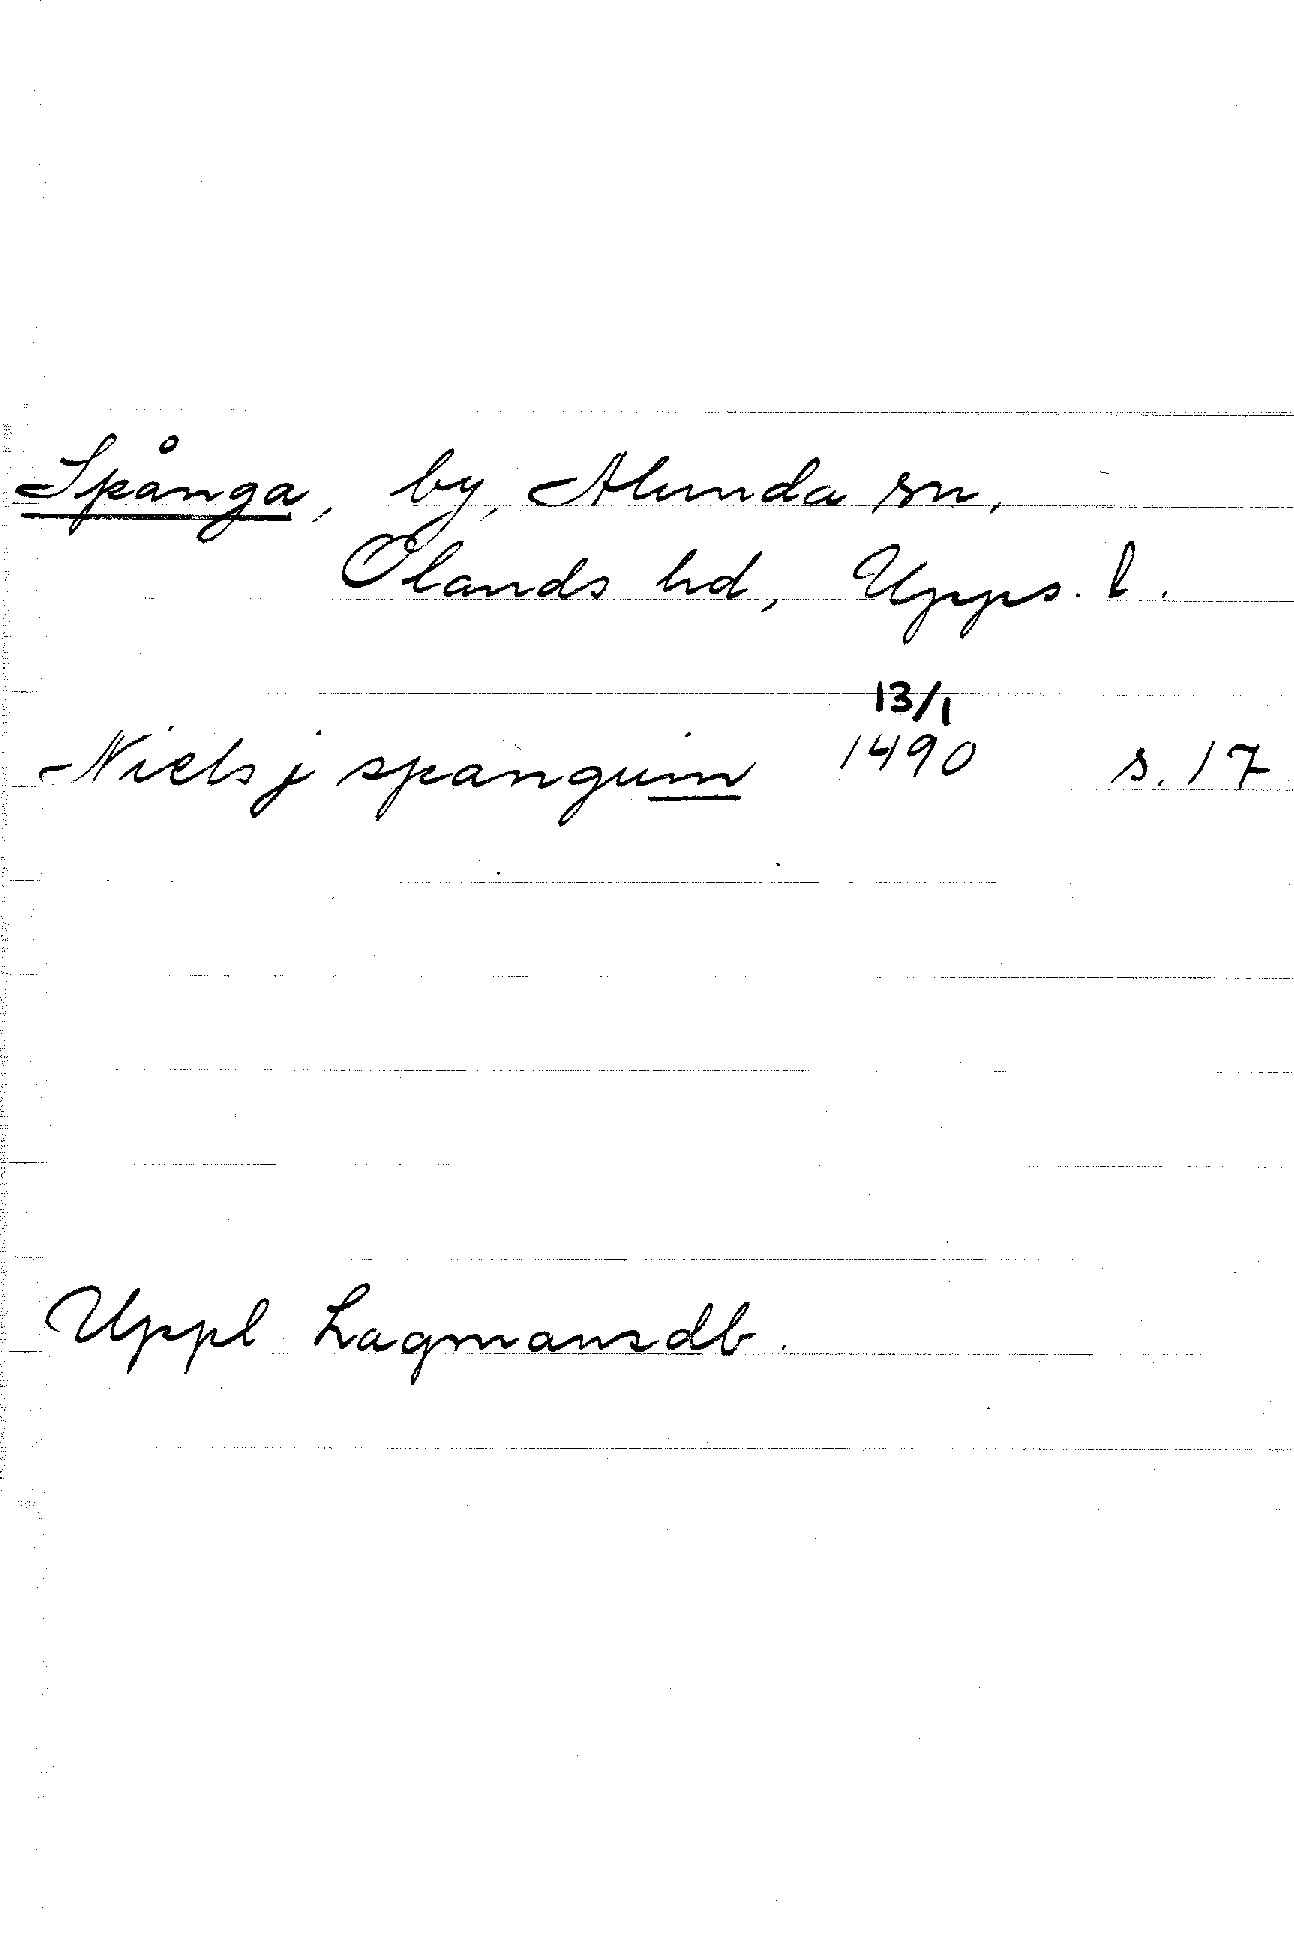 Spånga, by, Alunda sn,
Olands hd, Upps. l.
13/1
Niels j spangum 1490 s. 17
Uppl Lagmansdb.